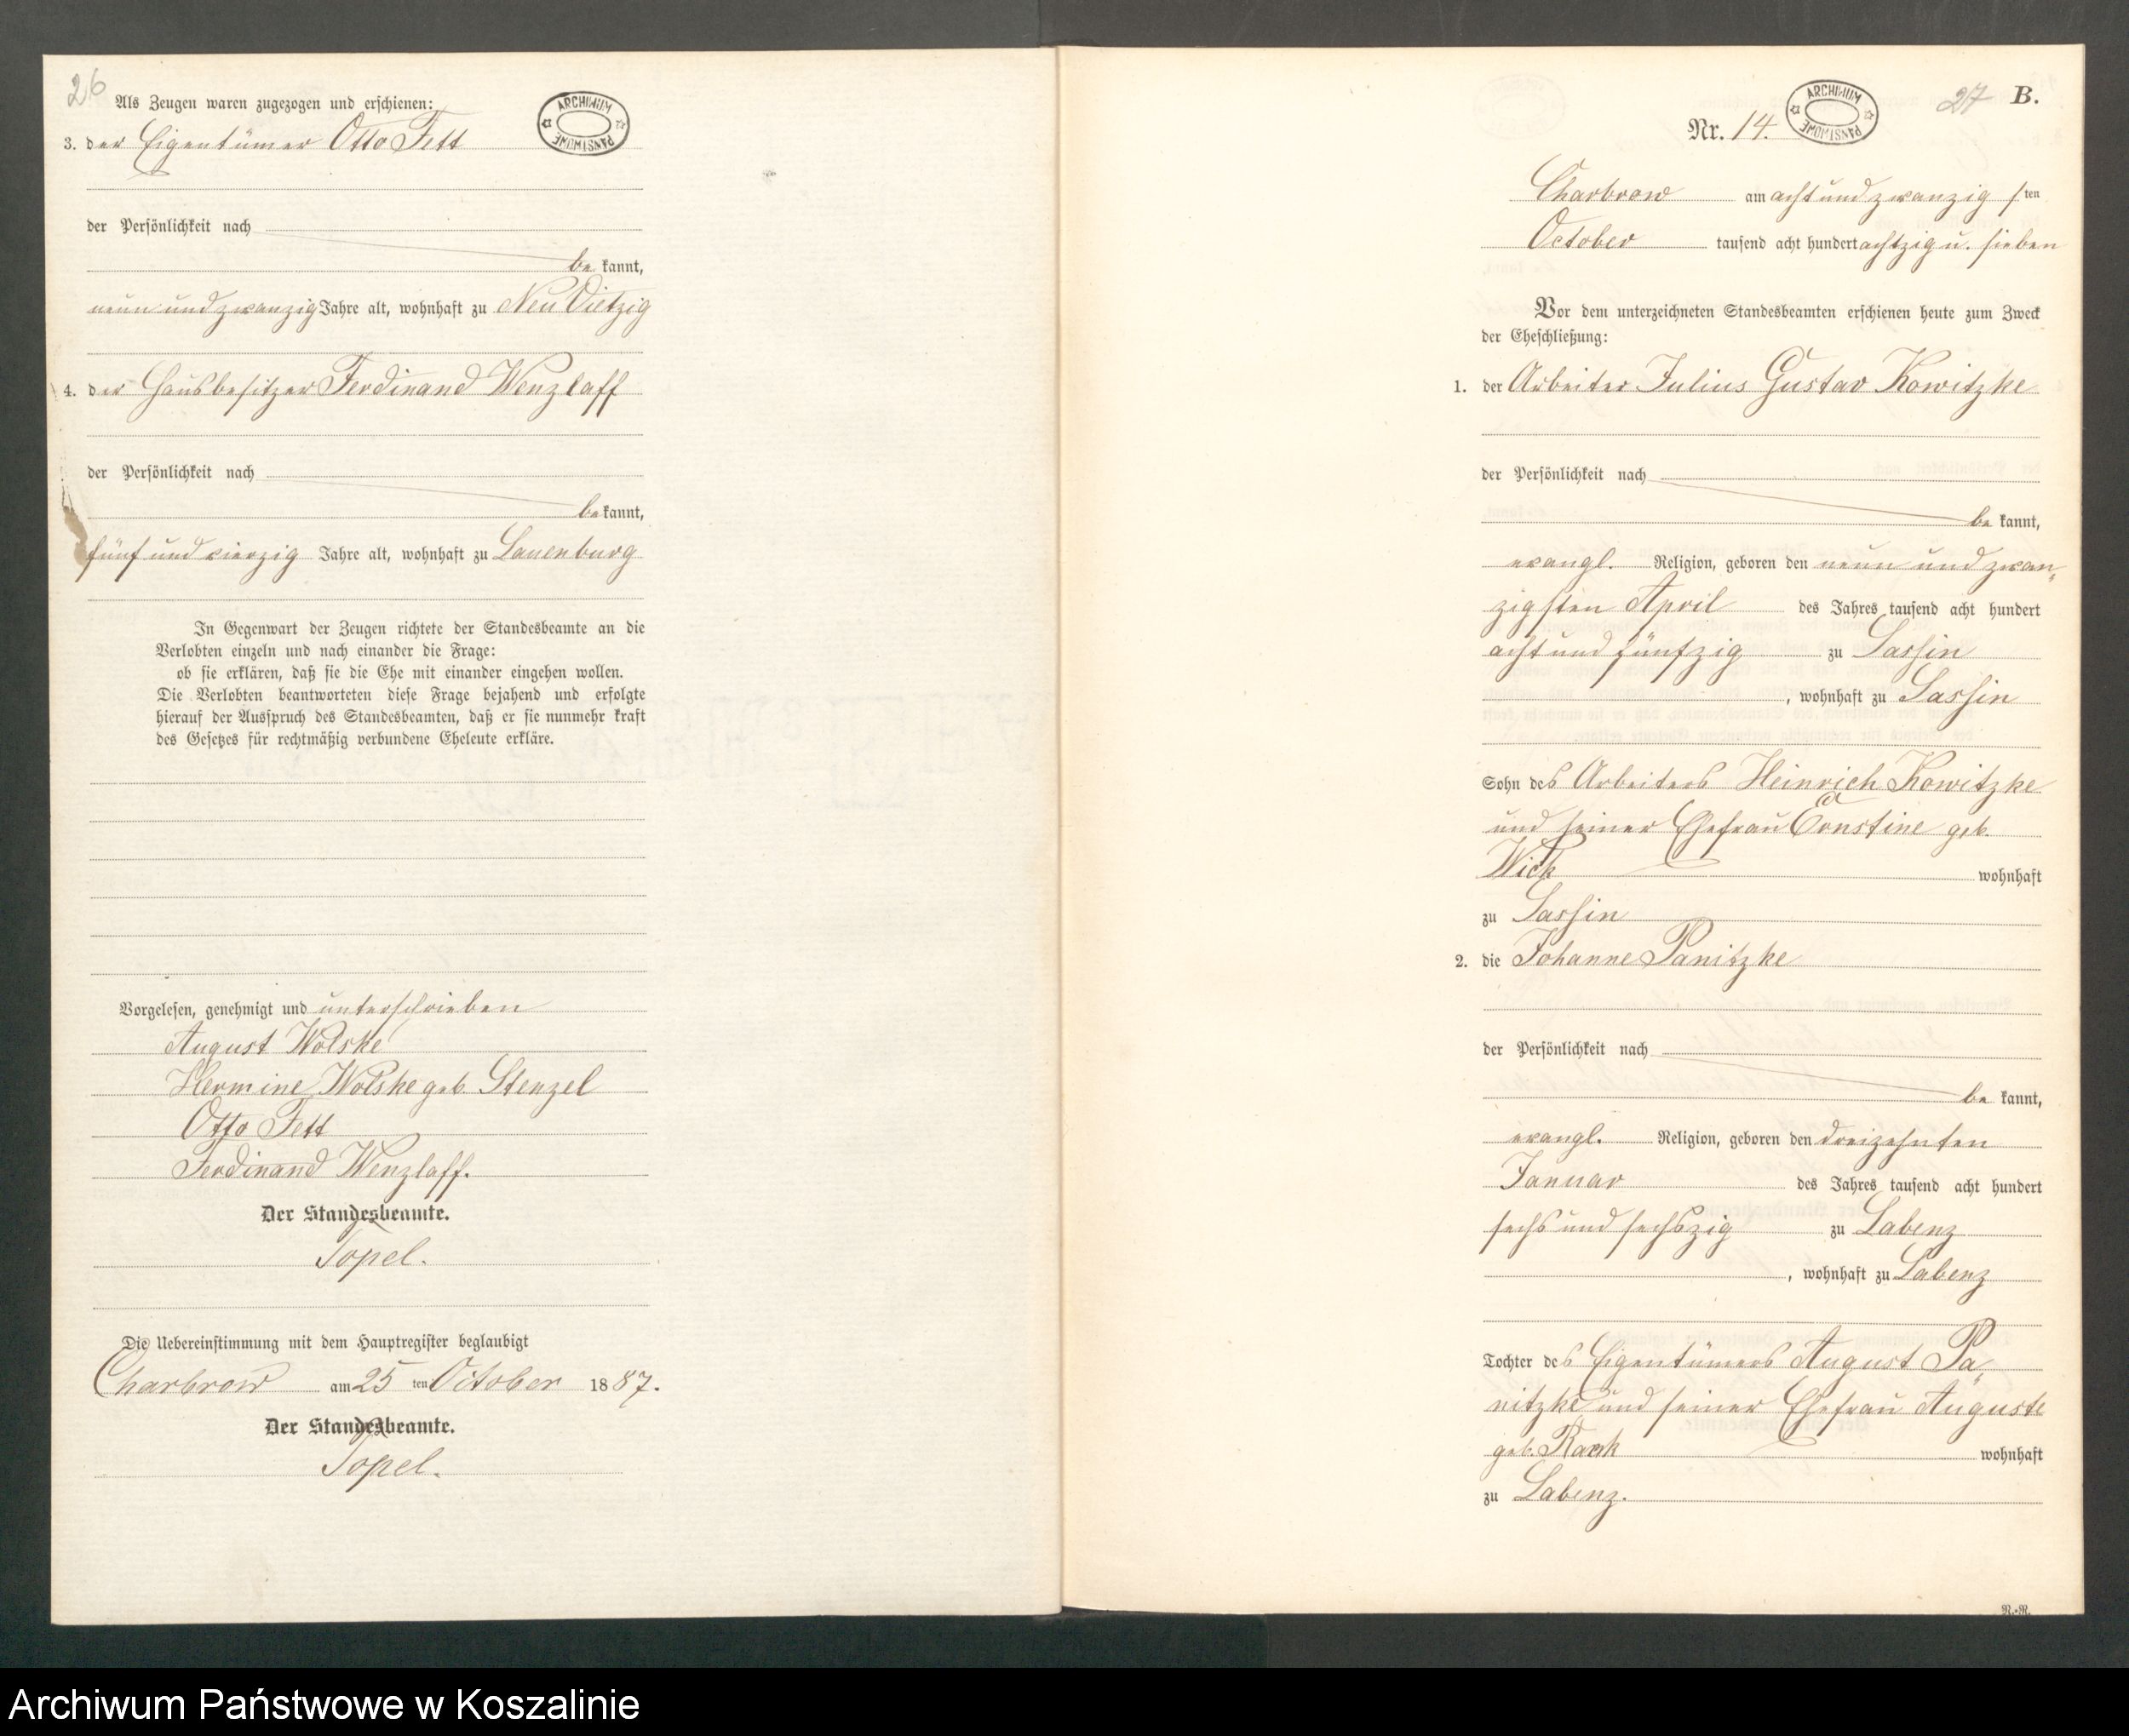 26
Als Zeugen waren zugezogen und erschienen:
ARCHIWUM PAŃSTWOWE
3. der Eigentümer Otto Fett
der Persönlichkeit nach
be kannt,
neun und zwanzig Jahre alt, wohnhaft zu Neu Vietzig
4. der Hausbesitzer Ferdinand Wenzlaff
der Persönlichkeit nach
be kannt,
fünf und vierzig Jahre alt, wohnhaft zu Lauenburg
In Gegenwart der Zeugen richtete der Standesbeamte an die
Verlobten einzeln und nach einander die Frage:
ob sie erklären, daß sie die Ehe mit einander eingehen wollen.
Die Verlobten beantworteten diese Frage bejahend und erfolgte
hierauf der Ausspruch des Standesbeamten, daß er sie nunmehr kraft
des Gesetzes für rechtmäßig verbundene Eheleute erkläre.
Vorgelesen, genehmigt und unterschrieben
August Wolske
Hermine Wolske geb. Stenzel
Otto Fett
Ferdinand Wenzlaff.
Der Standesbeamte.
Topel.
Die Uebereinstimmung mit dem Hauptregister beglaubigt
Charbrow am 25 ten October 1887.
Der Standesbeamte.
Topel.
27 B.
ARCHIWUM PAŃSTWOWE
Nr. 14.
Charbrow am acht und zwanzig s ten
October tausend acht hundert achtzig u. sieben
Vor dem unterzeichneten Standesbeamten erschienen heute zum Zweck
der Eheschließung:
1. der Arbeiter Julius Gustav Kowitzke
der Persönlichkeit nach
be kannt,
evangl. Religion, geboren den neun und zwan-
zigsten April des Jahres tausend acht hundert
acht und fünfzig zu Sassin
, wohnhaft zu Sassin
Sohn des Arbeiters Heinrich Kowitzke
und seiner Ehefrau Ernstine geb.
Wick wohnhaft
zu Sassin
2. die Johanne Panitzke
der Persönlichkeit nach
be kannt,
evangl. Religion, geboren den dreizehnten
Januar des Jahres tausend acht hundert
sechs und sechszig zu Labenz
, wohnhaft zu Labenz
Tochter des Eigentümers August Pa-
nitzke und seiner Ehefrau Auguste
geb. Rack wohnhaft
zu Labenz.
R.-R.
Archiwum Państwowe w Koszalinie